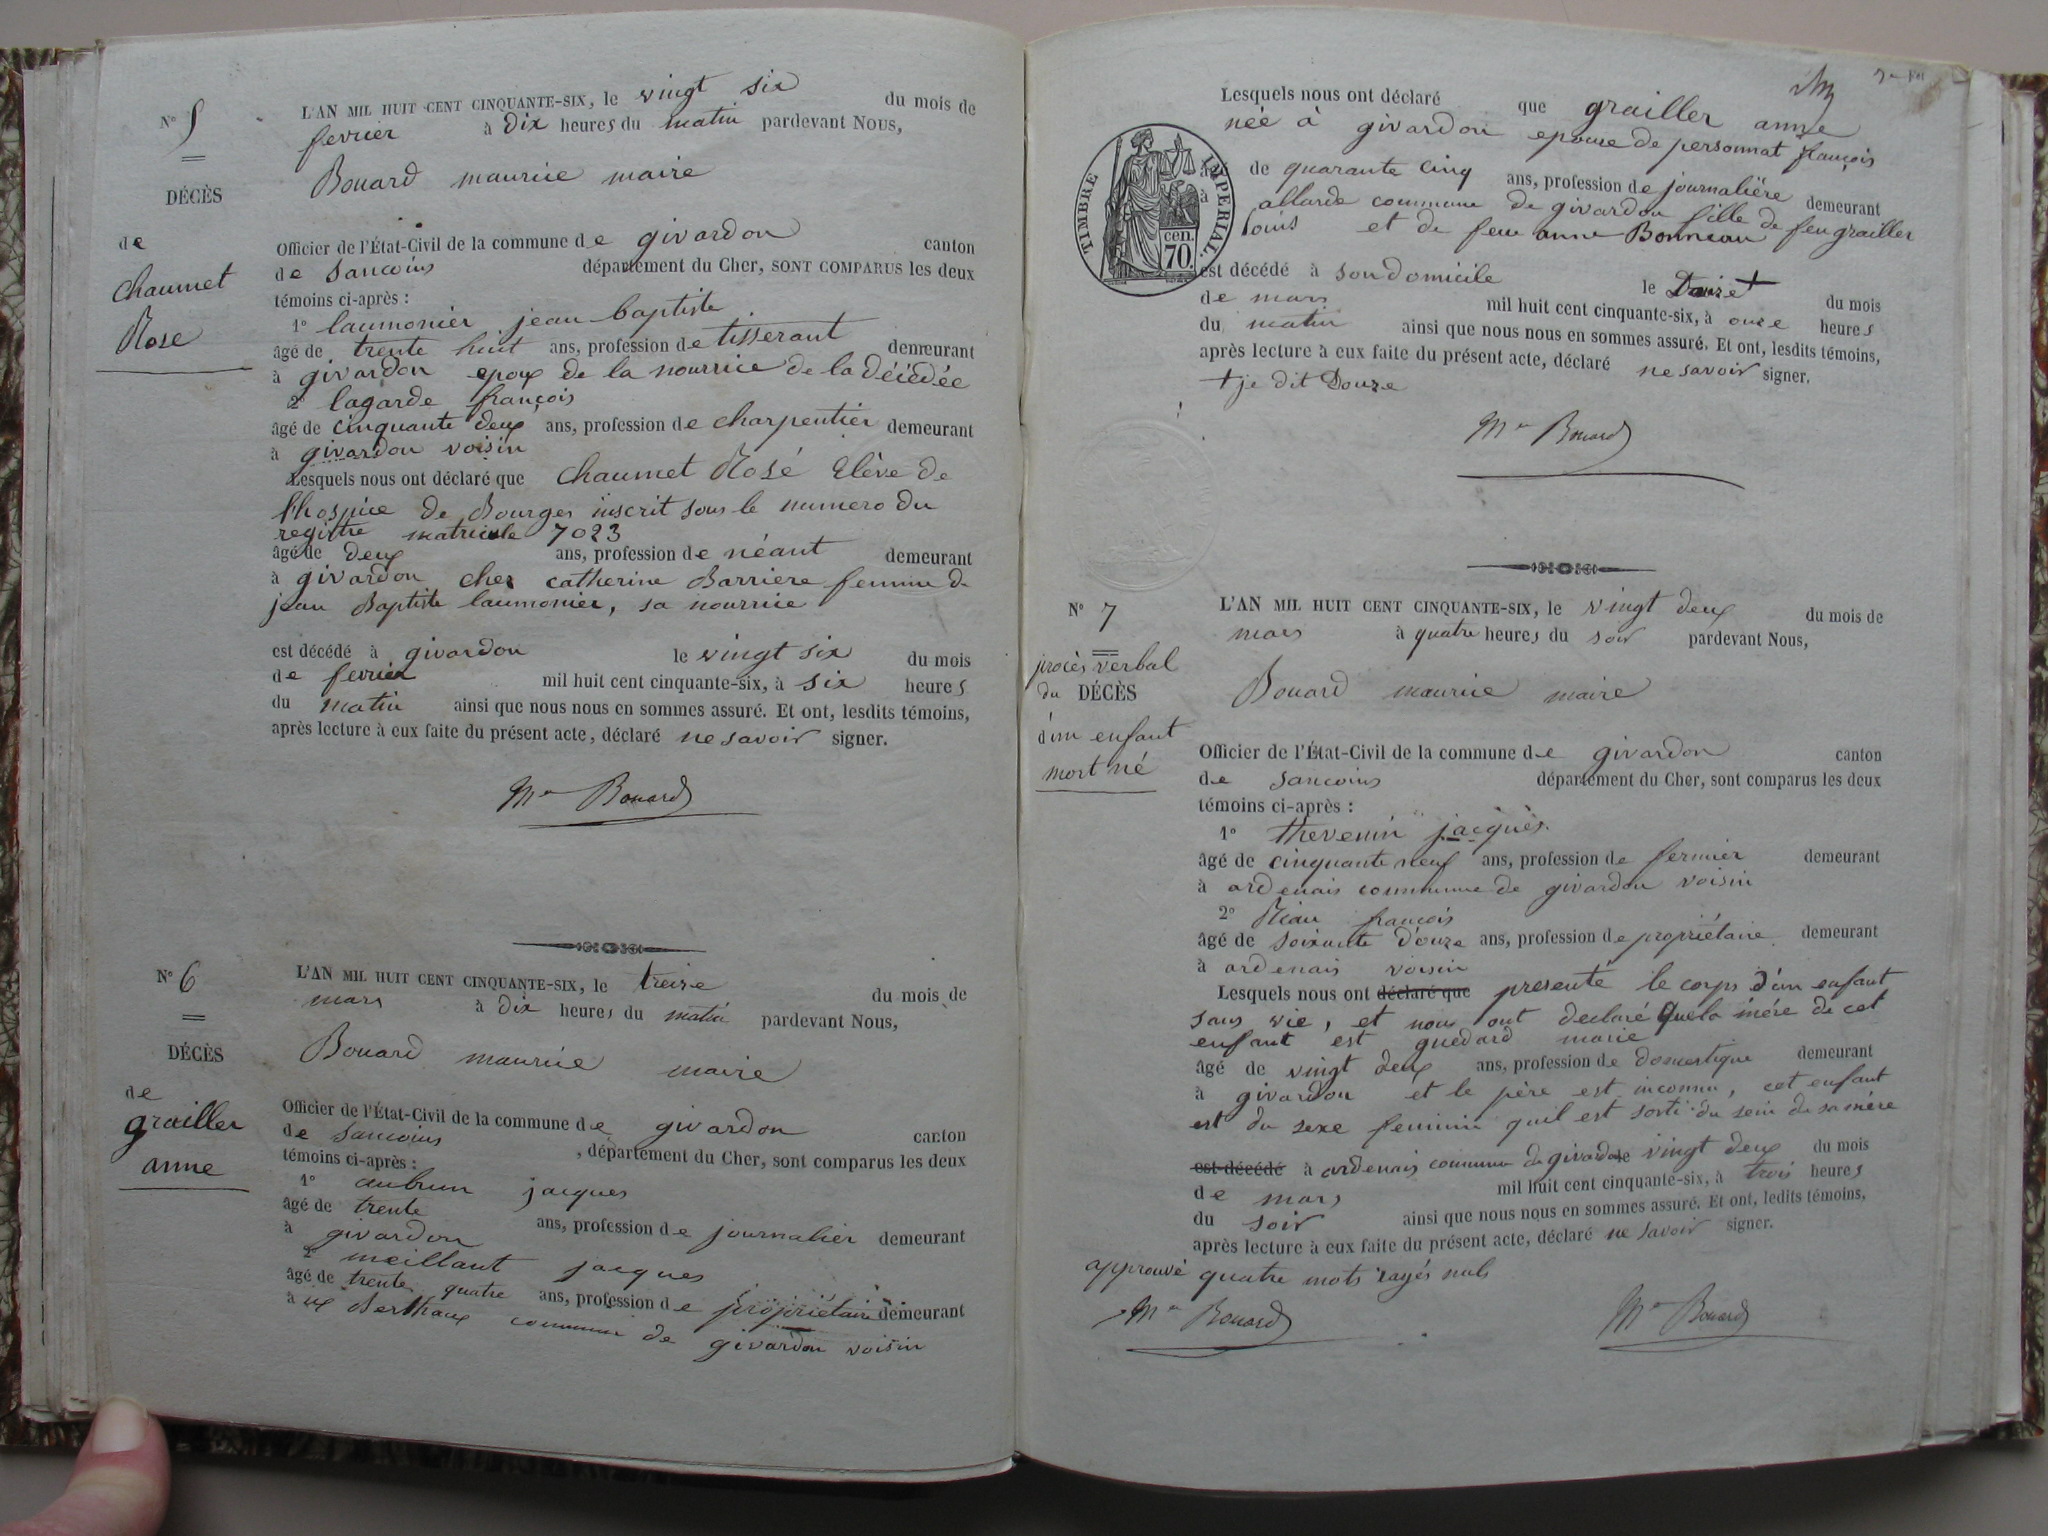 N° 5
DÉCÈS
de
chaumet
Rose
L'AN MIL HUIT CENT CINQUANTE-SIX, le vingt six du mois de
fevrier à dix heures du matin pardevant Nous,
Bouard maurice maire
Officier de l'État-Civil de la commune de givardon canton
de sancoins département du Cher, SONT COMPARUS les deux
témoins ci-après :
1° laumonier jean baptiste
âgé de trente huit ans, profession de tisserant demeurant
à givardon epoux de la nourrice de la décédée
2° lagarde françois
âgé de cinquante deux ans, profession de charpentier demeurant
à givardon voisin
Lesquels nous ont déclaré que chaumet Rosé Elève de
l'hospice de Bourges inscrit sous le numero du
registre matricule 7023
âgé de deux ans, profession de néant demeurant
à givardon chez catherine Barriere femme de
jean Baptiste laumonier, sa nourrice
est décédé à givardon le vingt six du mois
de fevrier mil huit cent cinquante-six, à six heures
du matin ainsi que nous nous en sommes assuré. Et ont, lesdits témoins,
après lecture à eux faite du présent acte, déclaré ne savoir signer.
Mce Bouard
N° 6
DÉCÈS
de
grailler
anne
L'AN MIL HUIT CENT CINQUANTE-SIX, le treize du mois de
mars à dix heures du matin pardevant Nous,
Bouard maurice maire
Officier de l'État-Civil de la commune de givardon canton
de sancoins, département du Cher, sont comparus les deux
témoins ci-après :
1° aubrun jacques
âgé de trente ans, profession de journalier demeurant
à givardon
2° meillant jacques
âgé de trente quatre ans, profession de propriétaire demeurant
à ux Berthaux commune de givardon voisin
Lesquels nous ont déclaré que grailler anne
née à givardon epouse de personnat françois
âgé de quarante cinq ans, profession de journalière demeurant
à allarde commune de givardon fille de feu grailler
louis et de feue anne Bonneau
TIMBRE IMPERIAL
70 cen.
est décédé à son domicile le Douze + du mois
de mars mil huit cent cinquante-six, à onze heures
du matin ainsi que nous nous en sommes assuré. Et ont, lesdits témoins,
après lecture à eux faite du présent acte, déclaré ne savoir signer.
+ je dit Douze
Mce Bouard
N° 7
procès verbal
du DÉCÈS
d'un enfant
mort né
L'AN MIL HUIT CENT CINQUANTE-SIX, le vingt deux du mois de
mars à quatre heures du soir pardevant Nous,
Bouard maurice maire
Officier de l'État-Civil de la commune de givardon canton
de sancoins département du Cher, sont comparus les deux
témoins ci-après :
1° thevenin jacques
âgé de cinquante neuf ans, profession de fermier demeurant
à ardenais commune de givardon voisin
2° Riau françois
âgé de soixante d'ouze ans, profession de propriétaire demeurant
à ardenais voisin
Lesquels nous ont déclaré que presenté le corps d'un enfant
sans vie, et nous ont declaré que la mére de cet
enfant est guedard marie
âgé de vingt deux ans, profession de domestique demeurant
à givardon et le père est inconnu, cet enfant
est du sexe feminin qu'il est sorti du sein de sa mère
est décédé à ardenais commune de givardon le vingt deux du mois
de mars mil huit cent cinquante-six, à trois heures
du soir ainsi que nous nous en sommes assuré. Et ont, ledits témoins,
après lecture à eux faite du présent acte, déclaré ne savoir signer.
approuvé quatre mots rayés nuls
Mce Bouard Mce Bouard